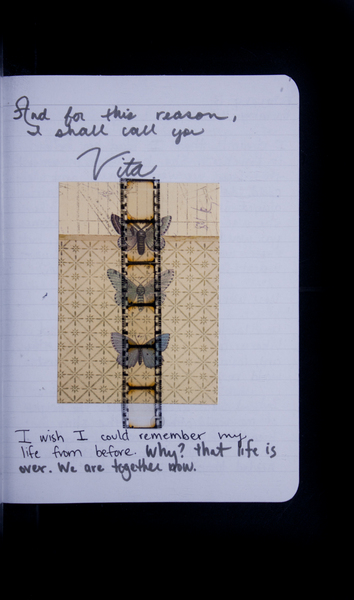 And for this reason,
I shall call you
Vita
I wish I could remember my
life from before. Why? that life is
over. We are together now.